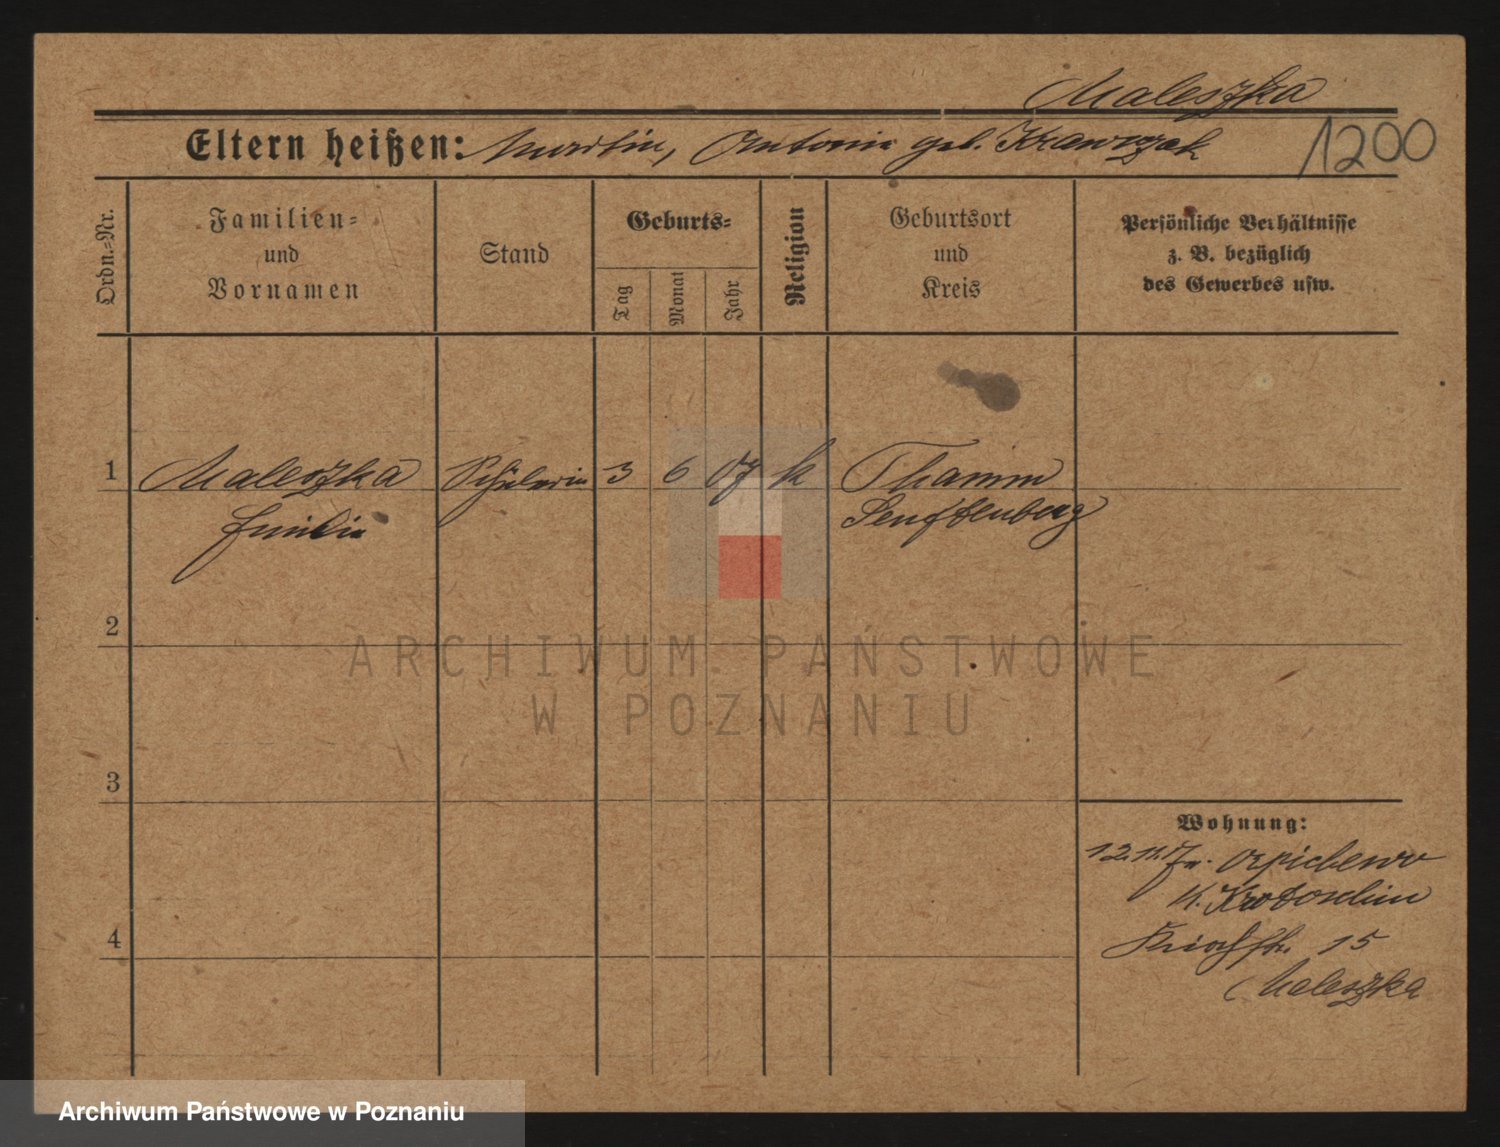 Maleszka
Eltern heißen: Martin, Antonie geb. Krawczak
1200
Ordn.=Nr.
Familien=
und
Vornamen
Stand
Geburts=
Tag
Monat
Jahr
Religion
Geburtsort
und
Kreis
Persönliche Verhältnisse
z. B. bezüglich
des Gewerbes usw.
1 Maleszka Schülerin 3 6 07 k Thamm
Emilie Senftenberg
2
3
4
Wohnung:
12.11.17
K. Krotoschin
15
Maleszka
ARCHIWUM PAŃSTWOWE
W POZNANIU
Archiwum Państwowe w Poznaniu